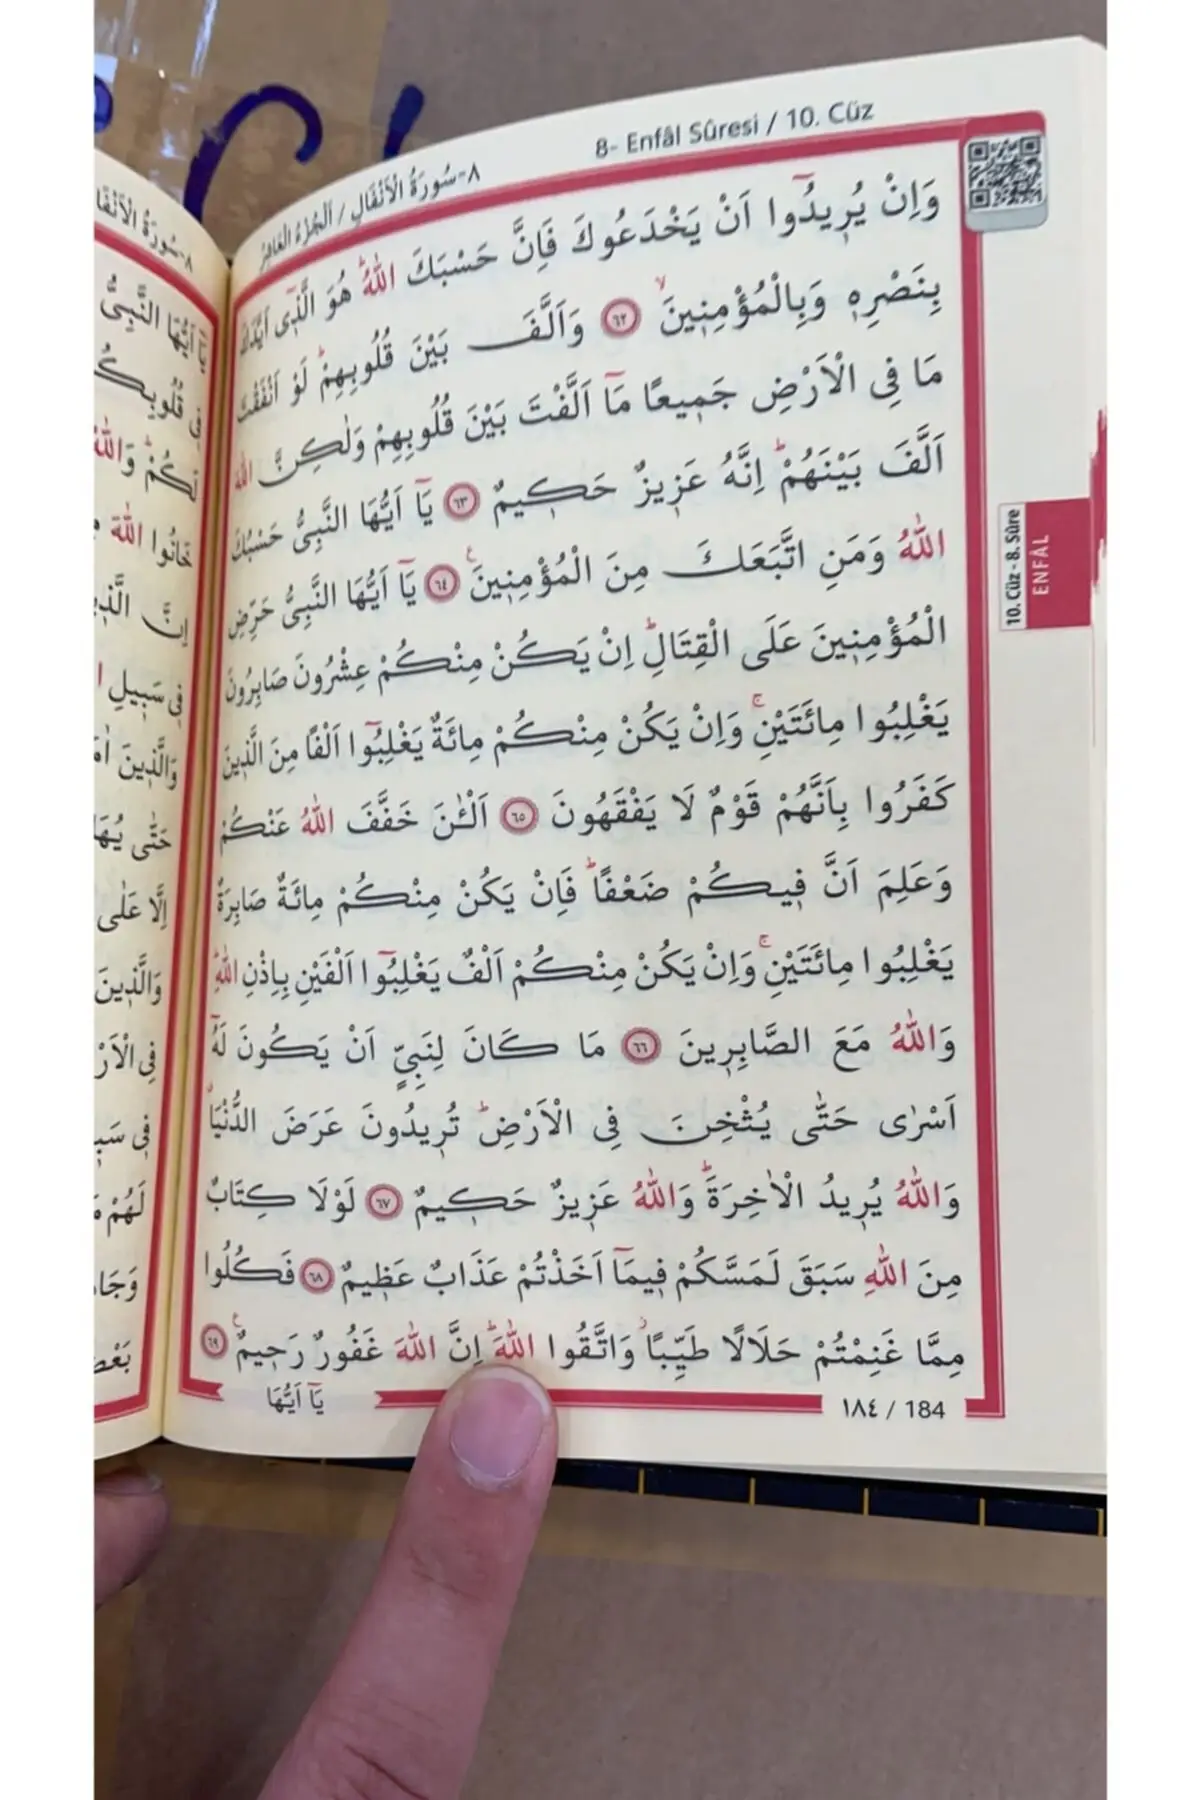 8- Enfâl Sûresi / 10. Cüz
٨-سُورَةُ الْاَنْفَالِ / اَلْجُزْءُ الْعَاشِرُ
وَاِنْ يُر۪يدُٓوا اَنْ يَخْدَعُوكَ فَاِنَّ حَسْبَكَ اللّٰهُۜ هُوَ الَّذ۪ٓي اَيَّدَكَ
بِنَصْرِه۪ وَبِالْمُؤْمِن۪ينَۙ ﴿٦٢﴾ وَاَلَّفَ بَيْنَ قُلُوبِهِمْۜ لَوْ اَنْفَقْتَ
مَا فِي الْاَرْضِ جَم۪يعًا مَٓا اَلَّفْتَ بَيْنَ قُلُوبِهِمْ وَلٰكِنَّ اللّٰهَ
اَلَّفَ بَيْنَهُمْۜ اِنَّهُ عَز۪يزٌ حَك۪يمٌ ﴿٦٣﴾ يَٓا اَيُّهَا النَّبِيُّ حَسْبُكَ
اللّٰهُ وَمَنِ اتَّبَعَكَ مِنَ الْمُؤْمِن۪ينَ۟ ﴿٦٤﴾ يَٓا اَيُّهَا النَّبِيُّ حَرِّضِ
الْمُؤْمِن۪ينَ عَلَى الْقِتَالِۜ اِنْ يَكُنْ مِنْكُمْ عِشْرُونَ صَابِرُونَ
يَغْلِبُوا مِائَتَيْنِۚ وَاِنْ يَكُنْ مِنْكُمْ مِائَةٌ يَغْلِبُٓوا اَلْفًا مِنَ الَّذ۪ينَ
كَفَرُوا بِاَنَّهُمْ قَوْمٌ لَا يَفْقَهُونَ ﴿٦٥﴾ اَلْـٰٔنَ خَفَّفَ اللّٰهُ عَنْكُمْ
وَعَلِمَ اَنَّ ف۪يكُمْ ضَعْفًاۜ فَاِنْ يَكُنْ مِنْكُمْ مِائَةٌ صَابِرَةٌ
يَغْلِبُوا مِائَتَيْنِۚ وَاِنْ يَكُنْ مِنْكُمْ اَلْفٌ يَغْلِبُٓوا اَلْفَيْنِ بِاِذْنِ اللّٰهِۜ
وَاللّٰهُ مَعَ الصَّابِر۪ينَ ﴿٦٦﴾ مَا كَانَ لِنَبِيٍّ اَنْ يَكُونَ لَهُٓ
اَسْرٰى حَتّٰى يُثْخِنَ فِي الْاَرْضِۜ تُر۪يدُونَ عَرَضَ الدُّنْيَاۗ
وَاللّٰهُ يُر۪يدُ الْاٰخِرَةَۜ وَاللّٰهُ عَز۪يزٌ حَك۪يمٌ ﴿٦٧﴾ لَوْلَا كِتَابٌ
مِنَ اللّٰهِ سَبَقَ لَمَسَّكُمْ ف۪يمَٓا اَخَذْتُمْ عَذَابٌ عَظ۪يمٌ ﴿٦٨﴾ فَكُلُوا
مِمَّا غَنِمْتُمْ حَلَالًا طَيِّبًاۘ وَاتَّقُوا اللّٰهَۜ اِنَّ اللّٰهَ غَفُورٌ رَح۪يمٌ۟ ﴿٦٩﴾
يَٓا اَيُّهَا
١٨٤ / 184
10. Cüz - 8. Sûre
ENFÂL